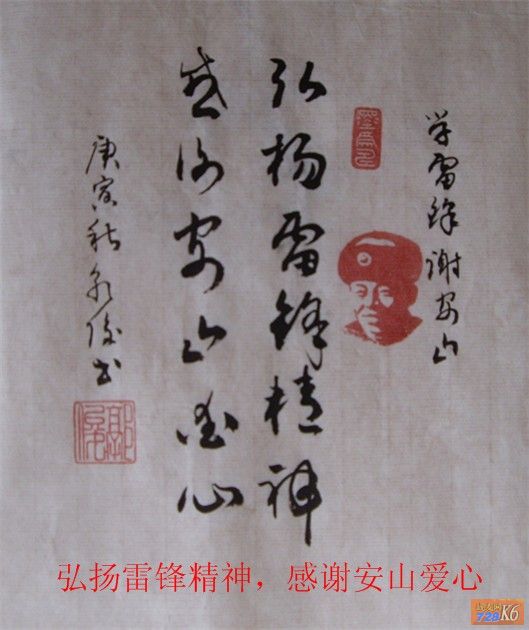 学雷锋谢安山
弘扬雷锋精神
感谢安山爱心
庚寅秋永书
弘扬雷锋精神，感谢安山爱心
729 K6